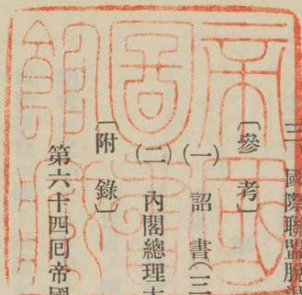 三、國際聯盟脱
〔參考〕
(一) 詔書(三
(二) 內閣總理大
〔附錄〕
第六十四回帝國